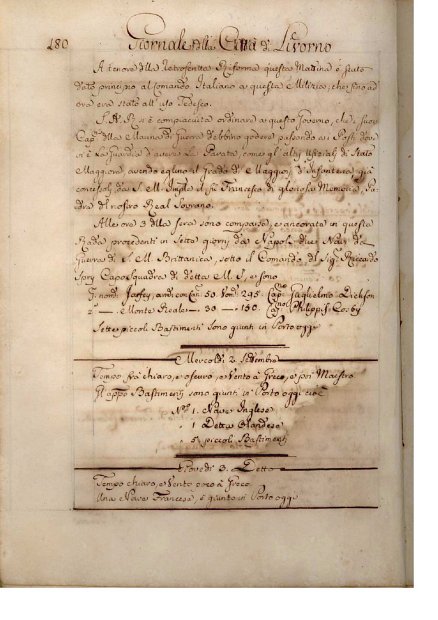 180 Giornale della Città di Livorno
A tenore della retroscritta Riforma questa Matina è stato
dato principio al Comando Italiano a questa Milizia, che fino ad
ora era stato all'uso Tedesco.
S. A. R. si è compiaciuta ordinare a questo Governo, che i suoi
Cap. della Marina di Guerra debbino godere passando ai Posti dove
vi è la Guardia d'avere la Parata, come gl'altri Ufiziali di Stato
Maggiore avendo eglino il Grado di Maggiori d'Infanteria già
concessoli da S. M. Imple Francesco di gloriosa Memoria, Pa-
dre del nostro Real Sovrano.
Alle ore 3 della sera sono comparse, e ancorate in questa
Rada procedenti in Sette giorni da Napoli due Navi da
Guerra di S. M. Brittanica, sotto il Comando del Sig. Riccardo
Spry Capo Squadra di detta M. S., e sono
P. nom. Jarsey, and. con Can. 50. Uom. 295. Cap. Guglielmo Dickson
2 — Monte Reale — 30 — 150. Cap. Philipps Cosby
Sette piccoli Bastimenti sono giunti in Porto oggi
Mercoldì 2. Settembre
Tempo frà chiaro, e oscuro, e Vento à Greco, e poi Maestro
Gl'appo Bastimenti sono giunti in Porto oggi cioè
N. 1. Nave Inglese
1 Detta Olandese
5 piccoli Bastimenti
Giovedì 3. Detto
Tempo chiaro, e Vento poco à Greco
Una Nave Francese è giunto in Porto oggi